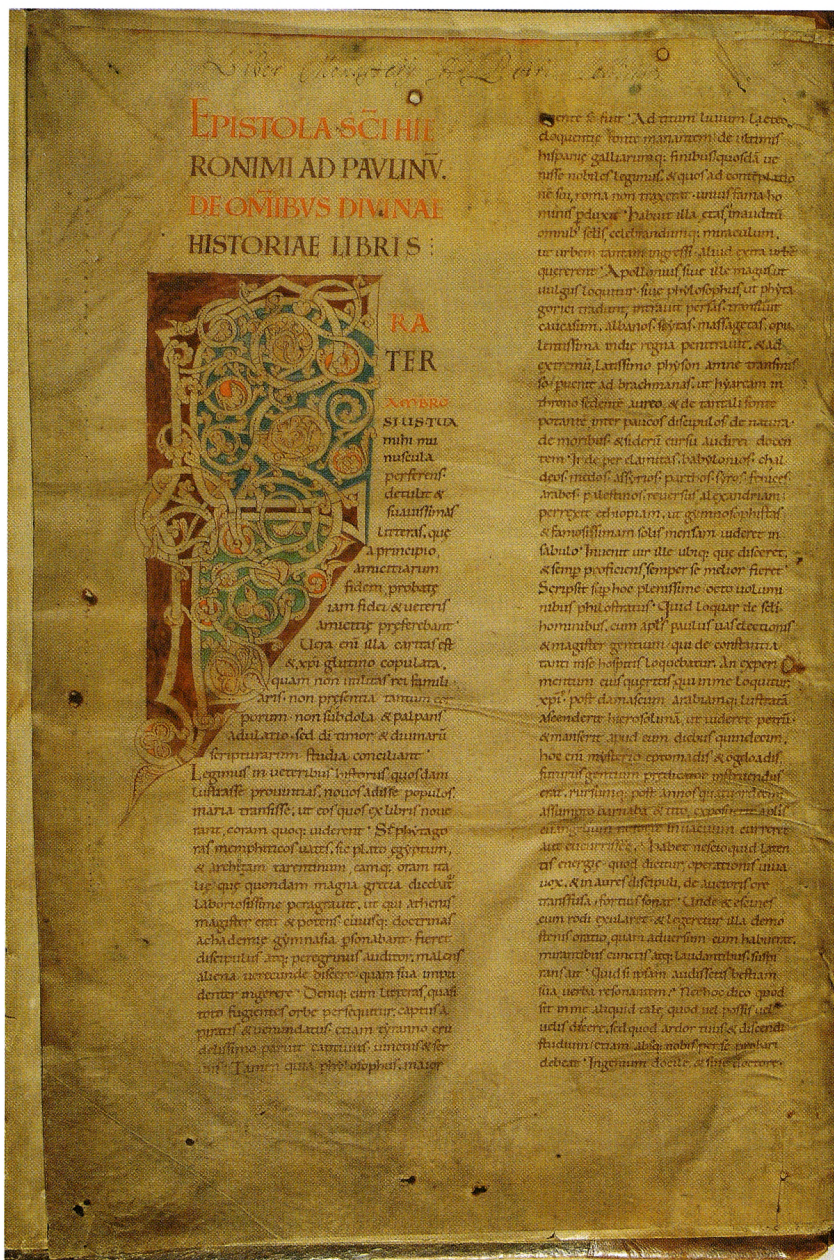 Liber Monasterij
EPISTOLA·SC̄I HIE
RONIMI AD PAVLINV̄.
DE OM̄IBVS DIVINAE
HISTORIAE LIBRIS :
F
RA
TER
AMBRO
SIUS TUA
mihi mu
nuscula
perferens·
detulit &
suauissimas
litteras, quę
a principio,
amicitiarum
fidem, probatę
iam fidei, & ueteris
amicitię pręferebant·
Uera enī illa caritas est
& xp̄i glutino copulata,
quam non utilitas rei famili
aris· non presentia tantum cor
porum· non subdola & palpans
adulatio· sed dī timor, & diuinarū
scripturarum studia conciliant·
Legimus in ueteribus historiis, quosdam
lustrasse prouintias, nouos adisse populos,
maria transisse, ut eos quos ex libris noue
rant, coram quoq; uiderent· Sic phytago
ras memphiticos uates, sic plato ęgyptum,
& architam tarentinum, eamq; oram ita
lię, quę quondam magna gretia dicebat̄
laboriosissime peragrauit, ut qui athenis
magister erat & potens, cuiusq; doctrinas
achademię gymnasia psonabant· fieret
discipulus atq; peregrinus auditor, malens
aliena uerecunde discere, quam sua impu
denter ingerere· Deniq; cum litteras, quasi
toto fugientes orbe persequitur, captus a
piratis & uenundatus, etiam tyranno cru
delissimo paruit, captiuus, uinctus & ser
uus· Tamen quia phylosophus, maior
emente se fuit· Ad titum liuium lacteo
eloquentię fonte manantem, de ultimis
hispanię galliarumq; finibus, quosdā ue
nisse nobiles legimus, & quos ad contēplatio
nē sui, roma non traxerat· unius fama ho
minis pduxit· Habuit illa ętas, inauditū
omnib; sęclis celebrandumq; miraculum,
ut urbem tantam ingressi· aliud extra urbē
quererent· Apollonius siue ille magus ut
uulgus loquitur· siue phylosophus, ut phyta
gorici tradunt, intrauit persas, transiuit
caucasum, albanos, scytas, massagetas, opu
lentissima indię regna penetrauit, & ad
extremū, latissimo physon amne transmis
so, puenit ad brachmanas, ut hyarcam in
throno sedentē aureo, & de tantali fonte
potantē inter paucos discipulos de natura·
de moribus, & siderū cursu audiret docen
tem· Inde per elamitas, babylonios, chal
deos, medos, assyrios, parthos, syros, fenices
arabes, palestinos, reuersus alexandriam,
perrexit ethiopiam, ut gymnosophistas,
& famosissimam solis mensam uideret in
sabulo· Inuenit uir ille ubiq; quę disceret,
& semp proficiens, semper se melior fieret·
Scripsit sup hoc plenissime, octo uolumi
nibus philostratus· Quid loquar de sęcli
hominibus, cum apls paulus uas electionis
& magister gentium, qui de constantia
tanti in se hospitis loquebatur· An experi
mentum eius queritis, qui in me loquitur,
xp̄s? post damascum arabiamq; lustratā
ascenderit hierosolimā, ut uideret petrū·
& manserit apud eum diebus quindecim,
hoc enī mysterio eptomadis & ogdoadis,
futurus gentium predicator instruendus
erat, rursumq; post annos quatuordecim
assumpto barnaba & tito, exposuerit aplis
euangelium, ne forte in uacuum curreret
aut cucurrisset· Habet nescio quid laten
tis energię, quod dicitur, operationis uiua
uox, & in aures discipuli, de auctoris ore
transfusa, fortius sonat· Unde & eschines
cum rodi exularet, & legeretur illa demo
stenis oratio, quam aduersum eum habuerat,
mirantibus cunctis atq; laudantibus, suspi
rans ait· Quid si ipsam audissetis bestiam
sua uerba resonantem? Nec hoc dico quod
sit in me aliquid tale, quod uel possis uel
uelis discere, sed quod ardor tuus, & discendi
studium, etiam absq; nobis per se probari
debeat· Ingenium docile, & sine doctore·